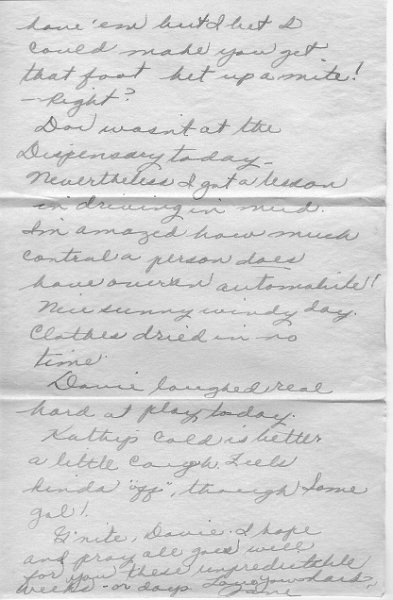 have 'em but I bet I
could make you get
that foot het up a mite!
- Right?
Doc wasn't at the
Dispensary today -
Nevertheless I got a lesson
in driving in mud.
I'm amazed how much
control a person does
have over an automobile!!
Nice sunny windy day.
Clothes dried in no
time.
Davie laughed real
hard at play, today.
Kathy's cold is better
a little cough. Feels
kinda "off", though. Some
gal!
G'nite, Davie. I hope
and pray all goes well
for you these unpredictable
weeks - or days. Love you hard,
Jane